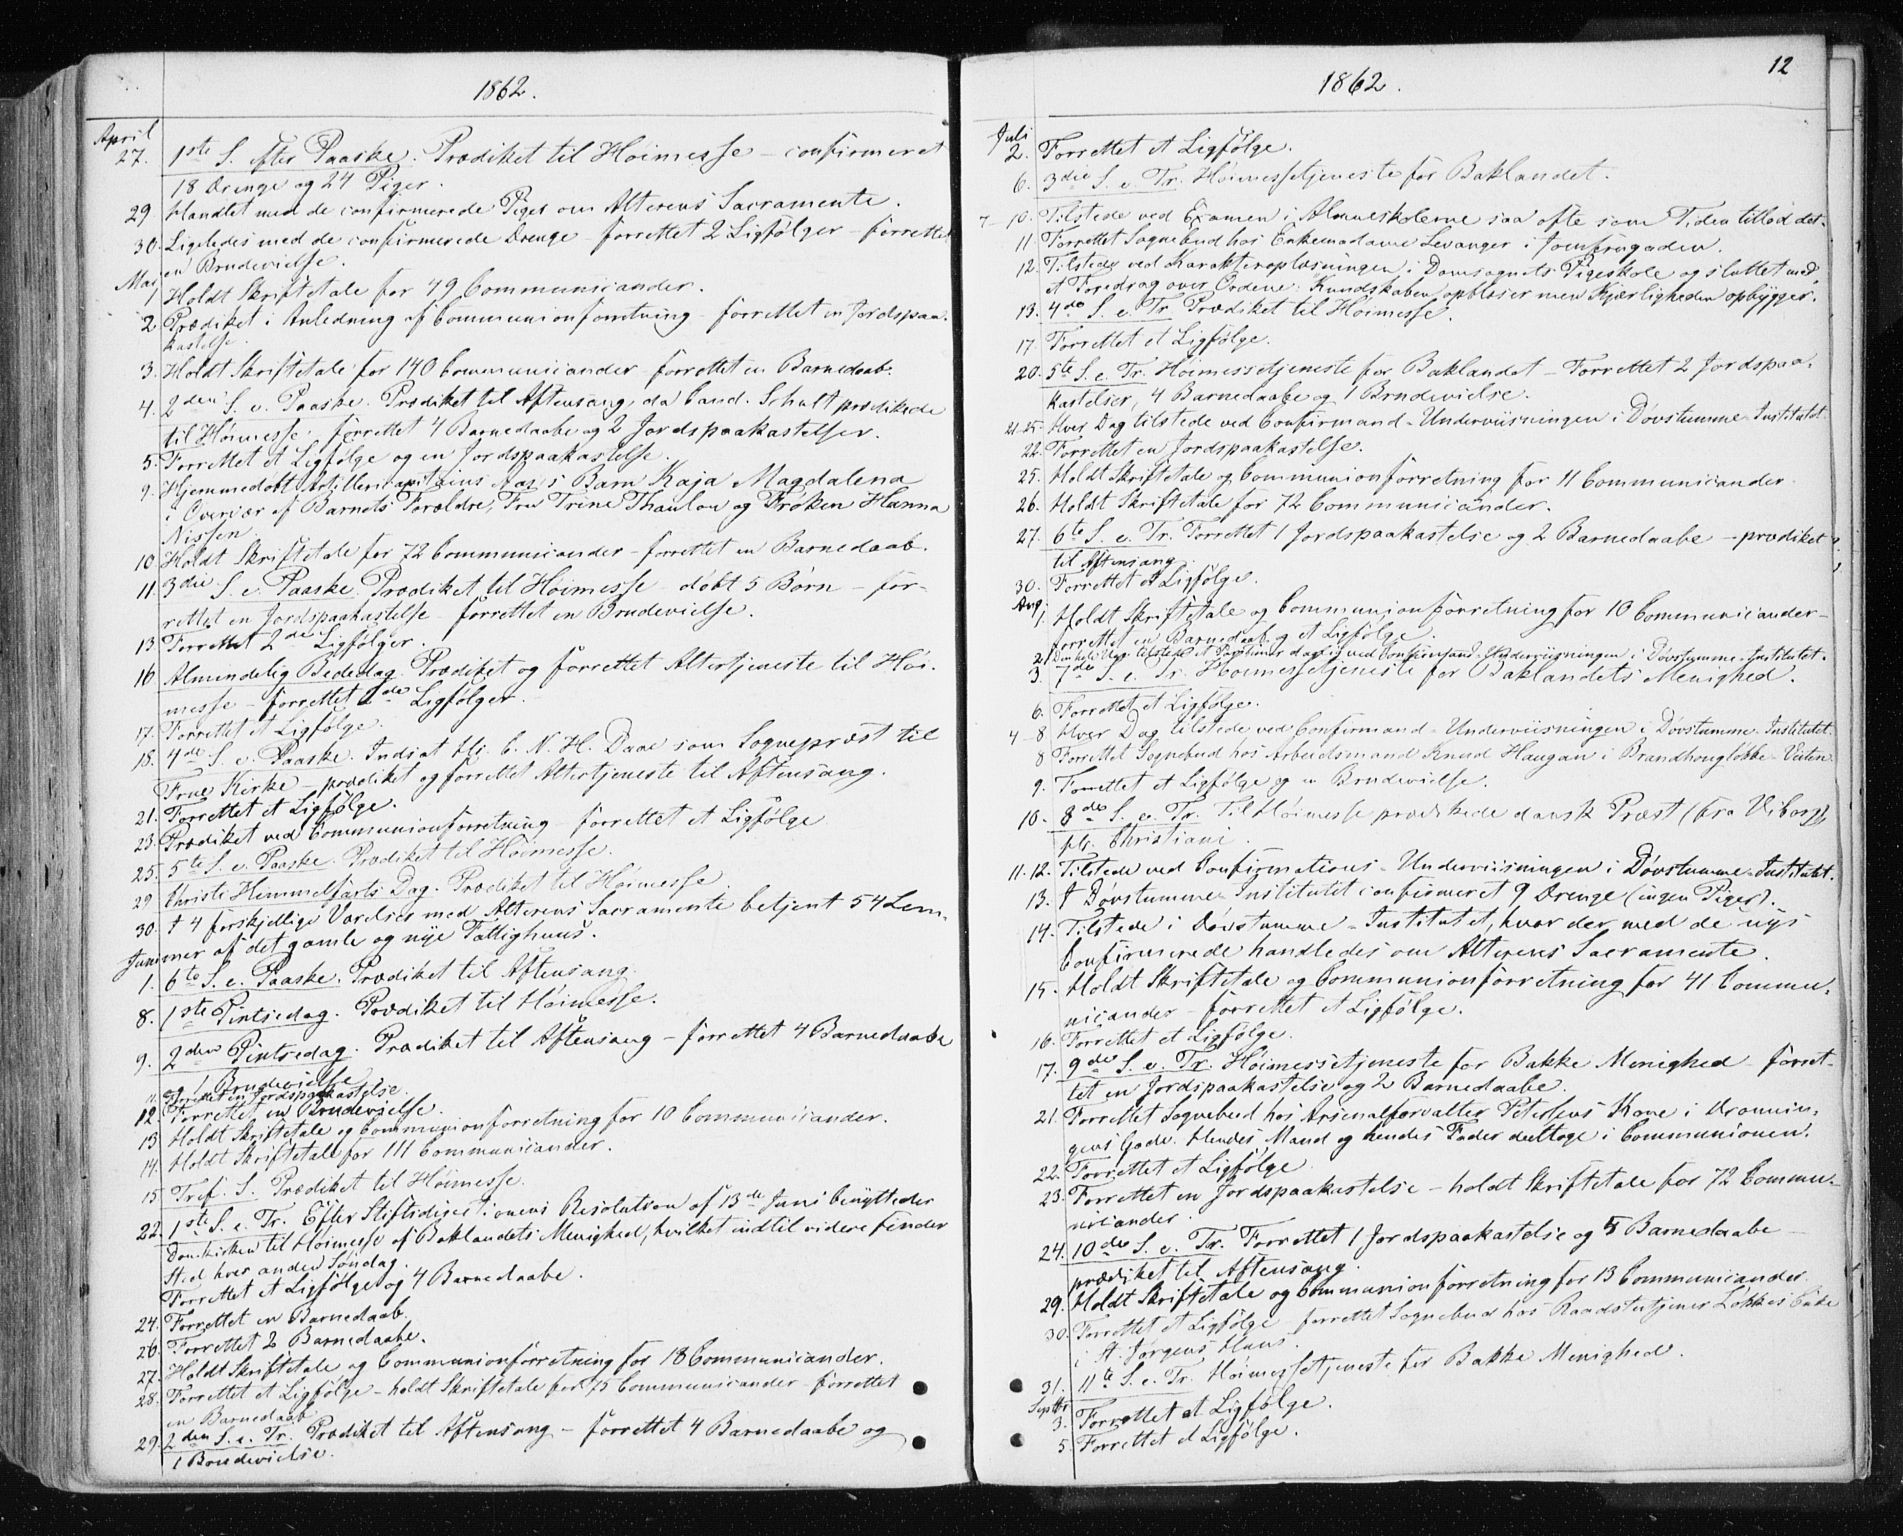 1862.
April
27. 1ste S. efter Paaske. Prædiket til Høimesse – confirmeret
18 Drenge og 24 Piger.
29 Handlet med de confirmerede Piger om Alterens Sacramente.
30. Ligeledes med de confirmerede Drenge – forrettet 2 Ligfølger – forrettet
en Brudevielse.
Mai
1 Holdt Skriftetale for 49 Communicander.
2 Prædiket i Anledning af Communionforretning – forrettet en Jordspaa-
kastelse.
3. Holdt Skriftetale for 140 Communicander – forrettet en Barnedaab.
4. 2den S. e. Paaske. Prædiket til Aftensang, da Cand. Schult prædikede
til Høimesse. forrettet 4 Barnedaabe og 2 Jordspaakastelser.
5. Forrettet et Ligfølge og en Jordspaakastelse.
9. Hjemmedøbt Barn Kaja Magdalena
i Overvær af Barnets Forældre, Fru Trine Thaulow og Frøken Hanna
Nissen.
10 Holdt Skriftetale for 72 Communicander – forrettet en Barnedaab.
11. 3die S. e. Paaske. Prædiket til Høimesse – døbt 5 Børn – for-
rettet en Jordspaakastelse – forrettet en Brudevielse.
13. Forrettet 2de Ligfølger.
16 Almindelig Bededag. Prædiket og forrettet Altertjeneste til Høi-
messe – forrettet 2de Ligfølger.
17. Forrettet et Ligfølge.
18. 4de S. e. Paaske. Indsat Hr. C. N. H. Daae som Sognepræst til
Frue Kirke – prædiket og forrettet Altertjeneste til Aftensang.
21. Forrettet et Ligfølge.
23. Prædiket ved Communionforretning – forrettet et Ligfølge
25. 5te S. e. Paaske. Prædiket til Høimesse.
29 Christi Himmelfarts Dag. Prædiket til Høimesse.
30. I 4 forskjellige Værelser med Alterens Sacramente betjent 54 Lem-
mer af det gamle og nye Fattighuus.
Juni
1. 6te S. e. Paaske. Prædiket til Aftensang.
8. 1ste Pintsedag. Prædiket til Høimesse.
9. 2den Pintsedag. Prædiket til Aftensang – forrettet 4 Barnedaabe
og 1 Brudevielse
11. Forrettet en Jordspaakastelse.
12. Forrettet en Brudevielse.
13 Holdt Skriftetale og Communionforretning for 10 Communicander.
14. Holdt Skriftetale for 111 Communicander.
15 Tref. S. Prædiket til Høimesse.
22. 1ste S. e. Tr. Efter Stiftsdirectionens Resolution af 13de Juni benyttedes
Domkirken til Høimesse af Baklandets Menighed, hvilket indtil videre finder
Sted hver anden Søndag.
Forrettet et Ligfølge og 4 Barnedaabe.
24. Forrettet en Barnedaab.
26. Forrettet 2 Barnedaabe.
27. Holdt Skriftetale og Communionforretning for 18 Communicander.
28. Forrettet et Ligfølge – holdt Skriftetale for 75 Communicander – forrettet
en Barnedaab
29. 2den S. e. Tr. Prædiket til Aftensang – forrettet 4 Barnedaabe og
1 Brudevielse.
1862.
12
Juli
2. Forrettet et Ligfølge.
6. 3die S. e. Tr. Høimessetjeneste for Baklandet.
7–10. Tilstede ved Examen i Almueskolerne saa ofte som Tiden tillod det.
11. Forrettet Sognebud hos Enkemadame Levanger i Jomfrugaden.
12. Tilstede ved Karakteroplæsningen i Domsognets Pigeskole og sluttet med
et Foredrag over Ordene: Kundskaben opblæser men Kjærligheden opbygger.
13. 4de S. e. Tr. Prædiket til Høimesse.
17. Forrettet et Ligfølge.
20. 5te S. e. Tr. Høimessetjeneste for Baklandet – Forrettet 2 Jordspaa-
kastelser, 4 Barnedaabe og 1 Brudevielse.
21–25. Hver Dag tilstede ved Confirmand-Underviisningen i Døvstumme-Institutet
22. Forrettet en Jordspaakastelse.
25. Holdt Skriftetale og Communionforretning for 11 Communicander.
26. Holdt Skriftetale for 72 Communicander.
27. 6te S. e. Tr. Forrettet 1 Jordspaakastelse og 2 Barnedaabe – prædiket
til Aftensang.
30. Forrettet et Ligfølge.
Aug.
1. Holdt Skriftetale og Communionforretning for 10 Communicander –
forrettet en Barnedaab og et Ligfølge.
2. Den hele Uge tilstede ved Confirmand-Underviisningen i Døvstumme-Institutet.
3. 7de S. e. Tr. Høimessetjeneste for Baklandets Menighed.
6. Forrettet et Ligfølge.
4–8. Hver Dag tilstede ved Confirmand-Underviisningen i Døvstumme-Institutet.
8 Forrettet Sognebud hos Arbeidsmand Knud Haugan i
9. Forrettet et Ligfølge og en Brudevielse.
10. 8de S. e. Tr. Til Høimesse prædikede dansk Præst (fra Viborg)
Hr. Christiani.
11.12. Tilstede ved Confirmations-Underviisningen i Døvstumme-Institutet.
13. I Døvstumme-Institutet confirmeret 9 Drenge (ingen Piger).
14. Tilstede i Døvstumme-Institutet, hvor der med de nys
Confirmerede handledes om Alterens Sacramente.
15. Holdt Skriftetale og Communionforretning for 41 Commu-
nicander – forrettet et Ligfølge.
16. Forrettet et Ligfølge.
17. 9de S. e. Tr. Høimessetjeneste for Bakke Menighed – forret-
tet en Jordspaakastelse og 2 Barnedaabe.
21. Forrettet Sognebud hos Arsenalforvalter Petersens Kone i Dronnin-
gens Gade. Hendes Mand og hendes Fader deeltoge i Communionen.
22. Forrettet et Ligfølge
23. Forrettet en Jordspaakastelse – holdt Skriftetale for 72 Commu-
nicander.
24. 10de S. e. Tr. Forrettet 1 Jordspaakastelse og 5 Barnedaabe –
prædiket til Aftensang.
29. Holdt Skriftetale og Communionforretning for 13 Communicander.
30. Forrettet et Ligfølge – forrettet Sognebud hos Raadstuetjener Løkkes Enke
i St. Jørgens Huus.
31. 11te S. e. Tr. Høimessetjeneste for Bakke Menighed.
Septbr
3. Forrettet et Ligfølge.
5. Forrettet et Ligfølge.